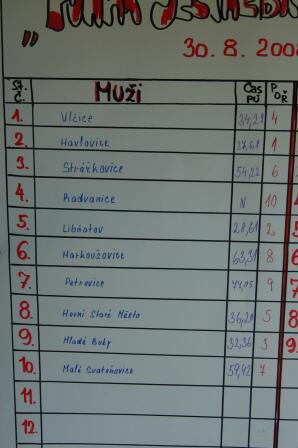 30. 8. 200
St. Č. Muži Čas PÚ POŘ
1. Vlčice 34,28 4
2. Havlovice 27,68 1
3. Strážkovice 54,22 6
4. Radvanice N 10
5. Libňatov 28,61 2,
6. Markoušovice 63,31 8
7. Petrovice 77,05 9
8. Horní Staré Město 36,28 5
9. Mladé Buky 32,36 3
10. Malé Svatoňovice 59,42 7
11.
12.